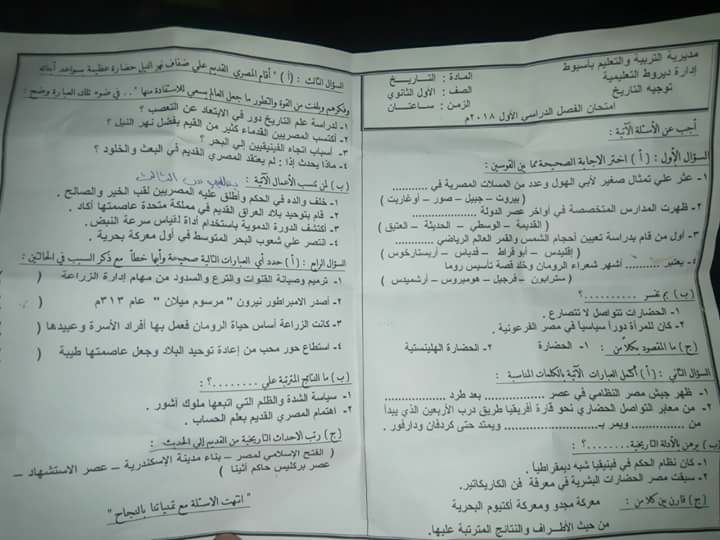 مديرية التربية والتعليم بأسيوط
إدارة ديروط التعليمية
توجيه التاريخ
المادة : التاريخ
الصف : الأول الثانوي
الزمن : ساعتان
امتحان الفصل الدراسي الأول ٢٠١٨م
أجب عن الأسئلة الآتية :
السؤال الأول : ( أ ) اختر الإجابة الصحيحة مما بين القوسين :
١- عثر علي تمثال صغير لأبي الهول وعدد من المسلات المصرية في ..........
( بيروت – جبيل – صور – أوغاريت )
٢- ظهرت المدارس المتخصصة في أواخر عصر الدولة ..........
( القديمة – الوسطي – الحديثة – العتيق )
٣- أول من قام بدراسة تعيين أحجام الشمس والقمر العالم الرياضي ..........
( إقليدس – أبو قراط – فدياس – أريستارخوس )
٤- يعتبر .......... أشهر شعراء الرومان وخلد قصة تأسيس روما
( سترابون – فرجيل – هوميروس – أرشميدس )
(ب) بم تفسر ..........؟ :
١- الحضارات تتواصل لا تتصارع .
٢- كان للمرأة دوراً سياسياً في مصر الفرعونية .
(ج) ما المقصود بكلاً من : ١- الحضارة ٢- الحضارة الهلينستية
السؤال الثاني : ( أ ) أكمل العبارات الآتية بالكلمات المناسبة :
١- ظهر جيش مصر النظامي في عصر .......... بعد طرد ..........
٢- من معابر التواصل الحضاري نحو قارة أفريقيا طريق درب الأربعين الذي يبدأ
من .......... ويمر بـ .......... ويمتد حتى كردفان ودارفور .
(ب) برهن بالأدلة التاريخية ..........؟ :
١- كان نظام الحكم في فينيقيا شبه ديمقراطياً .
٢- سبقت مصر الحضارات البشرية في معرفة فن الكاريكاتير.
(ج) قارن بين كلاً من : معركة مجدو ومعركة أكتيوم البحرية
من حيث الأطراف والنتائج المترتبة عليها.
السؤال الثالث : ( أ ) " أقام المصري القديم علي ضفاف نهر النيل حضارة عظيمة بسواعد أبنائه
وفكرهم وبلغت من القوة والتطور ما جعل العالم يسعي للاستفادة منها " .. في ضوء تلك العبارة وضح :
١- لدراسة علم التاريخ دور في الابتعاد عن التعصب ؟
٢- أكتسب المصريين القدماء كثير من القيم بفضل نهر النيل ؟
٣- أسباب اتجاه الفينيقيين إلي البحر ؟
٤- ماذا يحدث إذا : لم يعتقد المصري القديم في البعث والخلود ؟
(ب) لمن تنسب الأعمال الآتية :
١- خلف والده في الحكم وأطلق عليه المصريين لقب الخير والصالح .
٢- قام بتوحيد بلاد العراق القديم في مملكة متحدة عاصمتها أكاد .
٣- أكتشف الدورة الدموية باستخدام أداة لقياس سرعة النبض.
٤- انتصر علي شعوب البحر المتوسط في أول معركة بحرية .
السؤال الرابع : ( أ ) حدد أي العبارات التالية صحيحة وأيها خطأ مع ذكر السبب في الحالتين :
١- ترميم وصيانة القنوات والترع والسدود من مهام إدارة الزراعة ( )
٢- أصدر الامبراطور نيرون " مرسوم ميلان " عام ٣١٣م ( )
٣- كانت الزراعة أساس حياة الرومان فعمل بها أفراد الأسرة وعبيدها ( )
٤- استطاع حور محب من إعادة توحيد البلاد وجعل عاصمتها طيبة ( )
(ب) ما النتائج المترتبة علي ..........؟ :
١- سياسة الشدة والظلم التي اتبعها ملوك آشور .
٢- اهتمام المصري القديم بعلم الحساب .
(ج) رتب الأحداث التاريخية من القديم إلي الحديث :
( الفتح الإسلامي لمصر – بناء مدينة الإسكندرية – عصر الاستشهاد –
عصر بركليس حاكم أثينا )
" انتهت الأسئلة مع تمنياتنا بالنجاح "